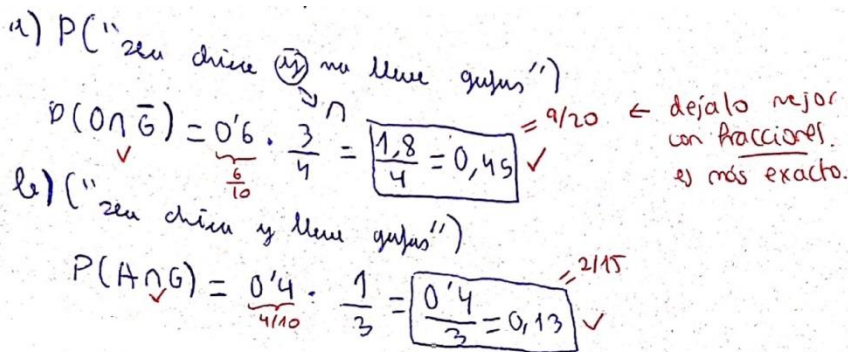 a) P("sea chica y no lleve gafas")
P(O∩G̅) = 0'6 · 3/4 = 1,8/4 = 0,45 ✓ = 9/20 ← dejalo mejor
✓ 6/10 ∩ con fracciones.
es más exacto.
b) ("sea chica y lleve gafas")
P(A∩G) = 0'4 · 1/3 = 0'4/3 = 0,13 ✓ = 2/15
✓ 4/10